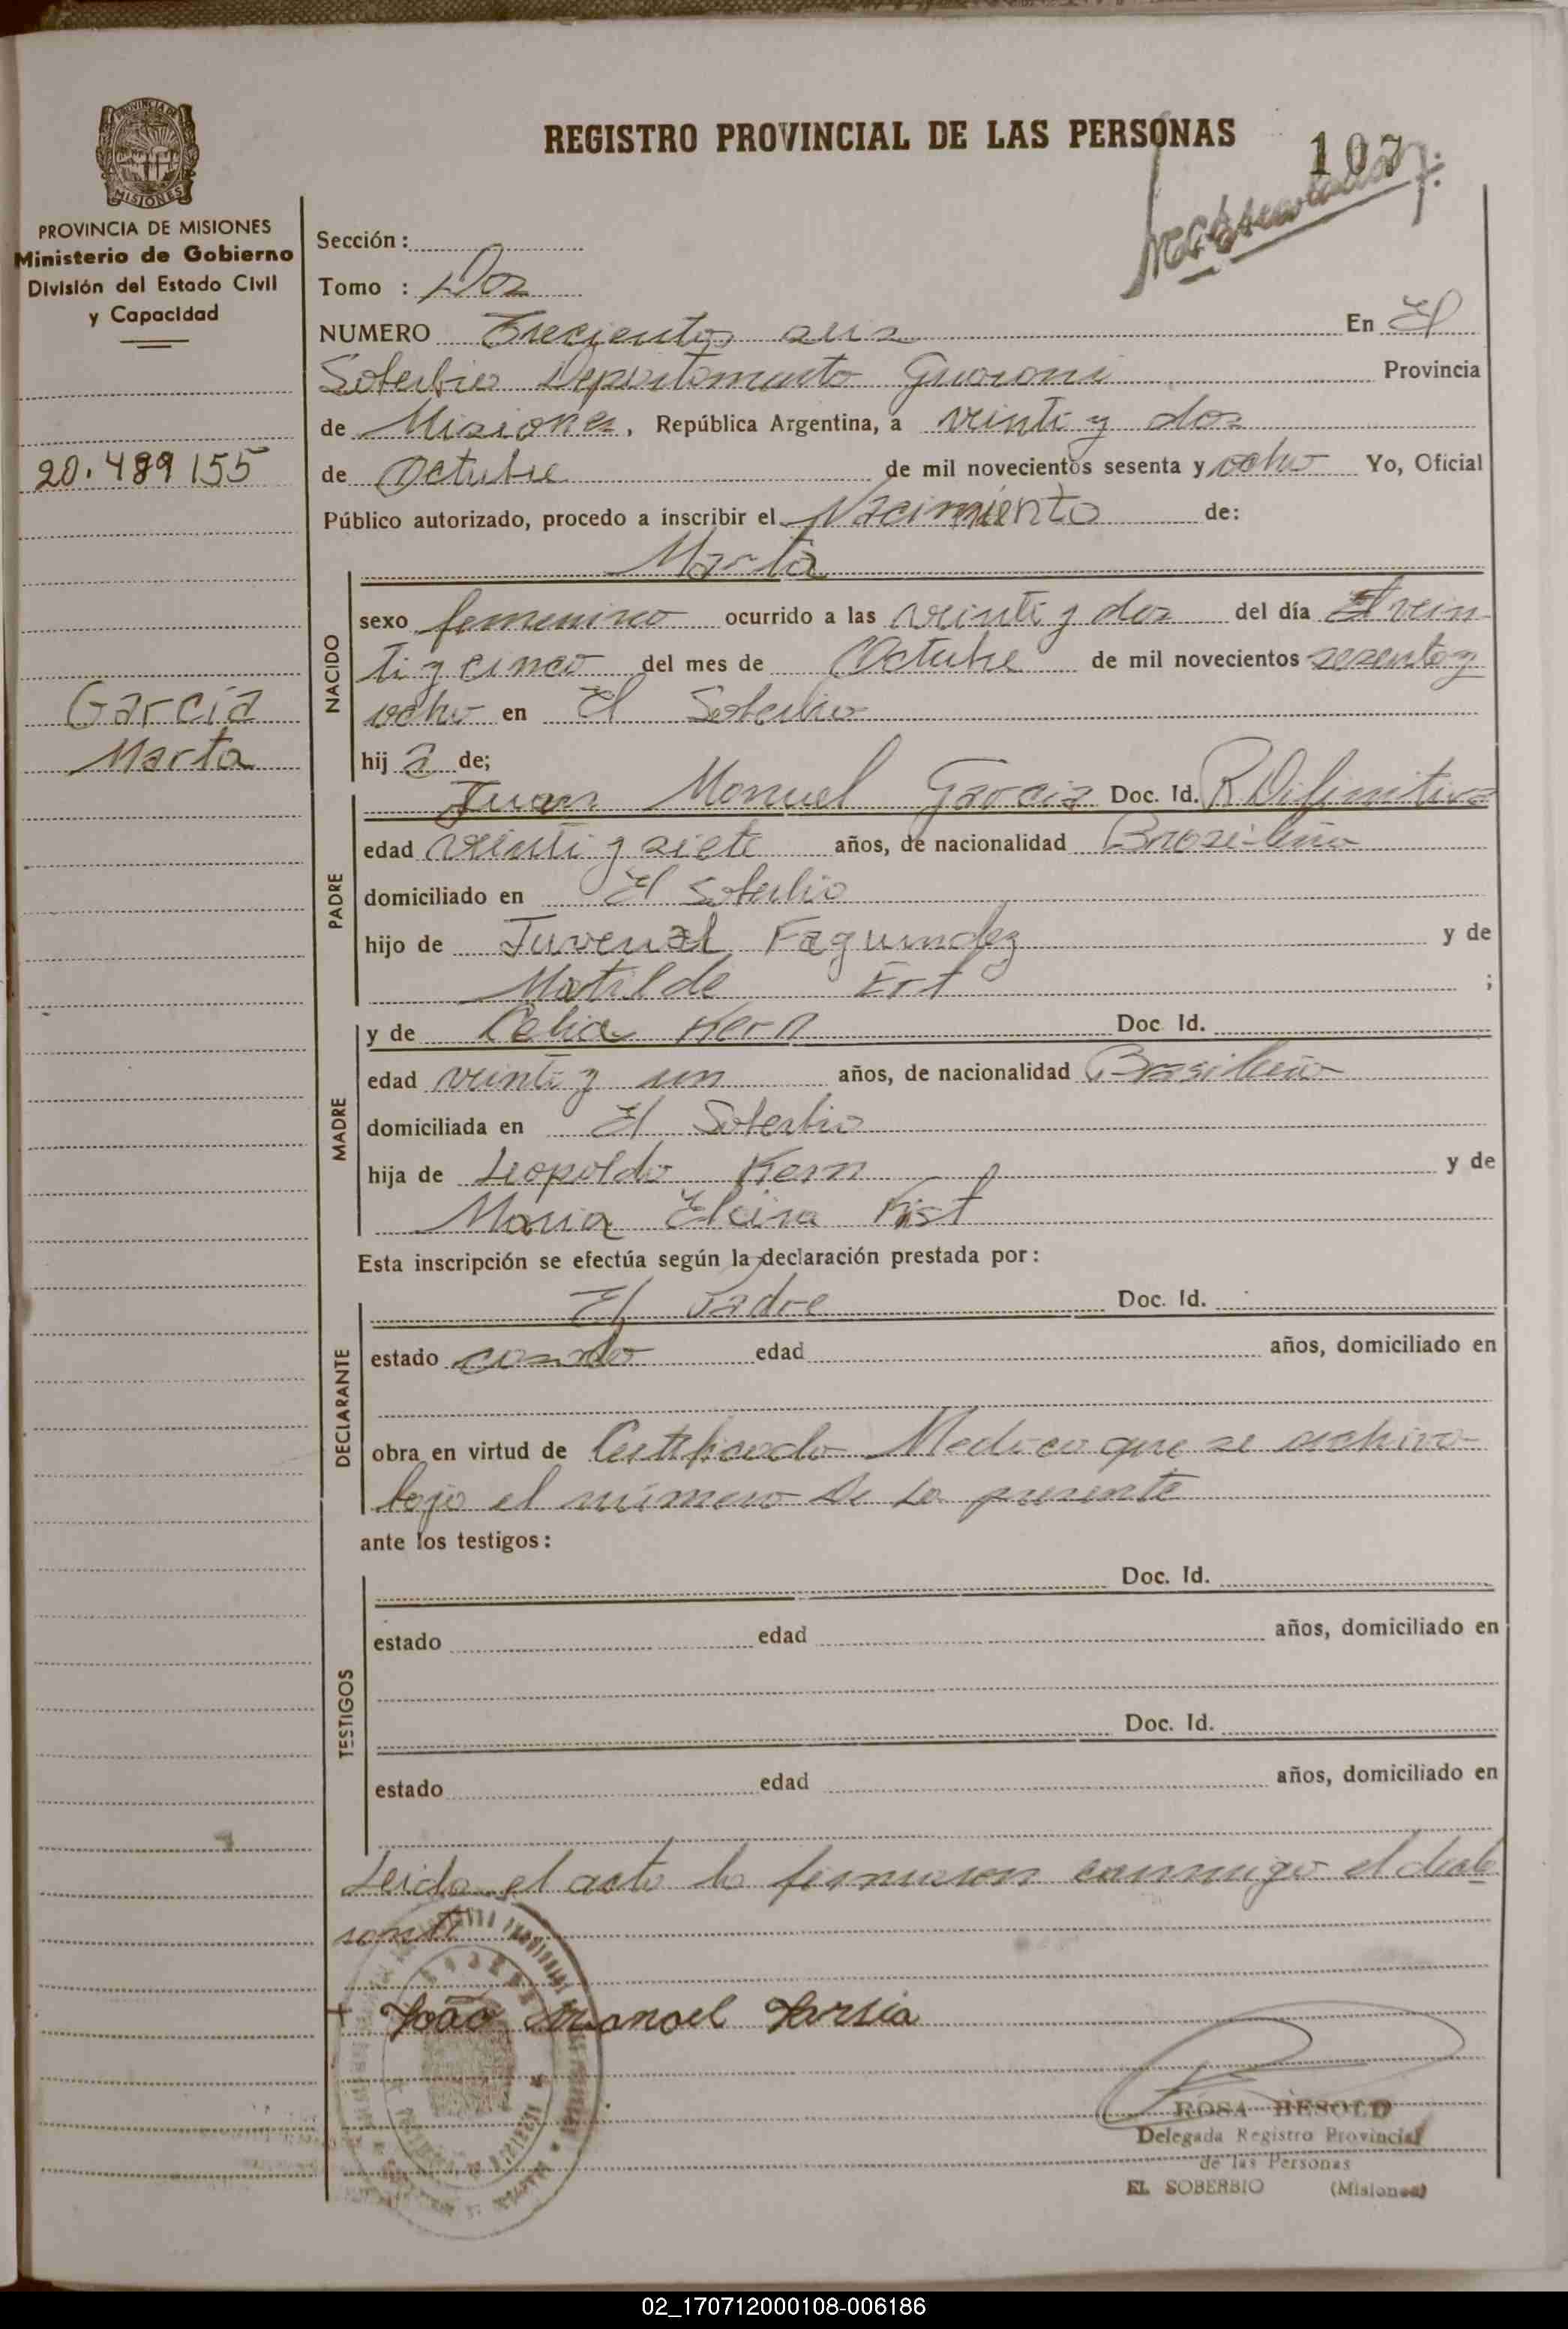 PROVINCIA DE
MISIONES
PROVINCIA DE MISIONES
Ministerio de Gobierno
División del Estado Civil
y Capacidad
20.489155
Garcia
Marta
REGISTRO PROVINCIAL DE LAS PERSONAS
107
Sección:
Tomo : Dos
NUMERO Treciento seis En El
Soberbio Departamento Guarani Provincia
de Misiones, República Argentina, a veinti y dos
de Octubre de mil novecientos sesenta y ocho Yo, Oficial
Público autorizado, procedo a inscribir el Nacimiento de:
Marta
NACIDO
sexo femenino ocurrido a las veinti y dos del día El vein
ti y cinco del mes de Octubre de mil novecientos sesenta y
ocho en El Soberbio
hij a de;
PADRE
Juan Manuel Garcia Doc. Id. R Difinitiva
edad veinti y siete años, de nacionalidad Brasileño
domiciliado en El Soberbio
hijo de Juvenal Fagundez y de
Matilde Ert ;
MADRE
y de Celia Kern Doc Id.
edad veinti y un años, de nacionalidad Brasileña
domiciliada en El Soberbio
hija de Leopoldo Kern y de
Maria Elvira Kist
Esta inscripción se efectúa según la declaración prestada por:
DECLARANTE
El Padre Doc. Id.
estado casado edad años, domiciliado en
obra en virtud de Certificado Medico que se archiva
bajo el numero de la presente
ante los testigos:
TESTIGOS
Doc. Id.
estado edad años, domiciliado en
Doc. Id.
estado edad años, domiciliado en
Leida el acta la firmaron conmigo el decla
rante
+ João Manoel Garsia
ROSA BESOLD
Delegada Registro Provincial
de las Personas
EL SOBERBIO (Misiones)
02_170712000108-006186